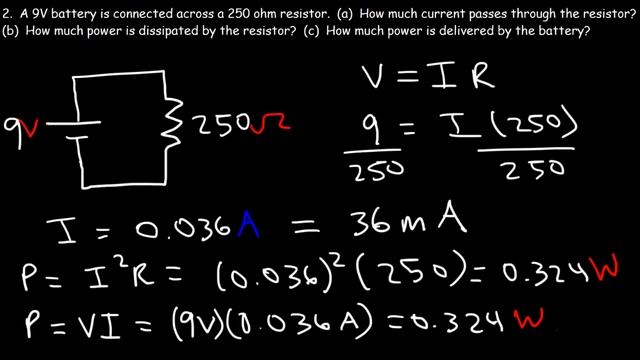 2. A 9V battery is connected across a 250 ohm resistor. (a) How much current passes through the resistor?
(b) How much power is dissipated by the resistor? (c) How much power is delivered by the battery?
V = I R
9V
250Ω
9 = I (250)
250 250
I = 0.036 A = 36 m A
P = I²R = (0.036)² (250) = 0.324 W
P = VI = (9V)(0.036 A) = 0.324 W